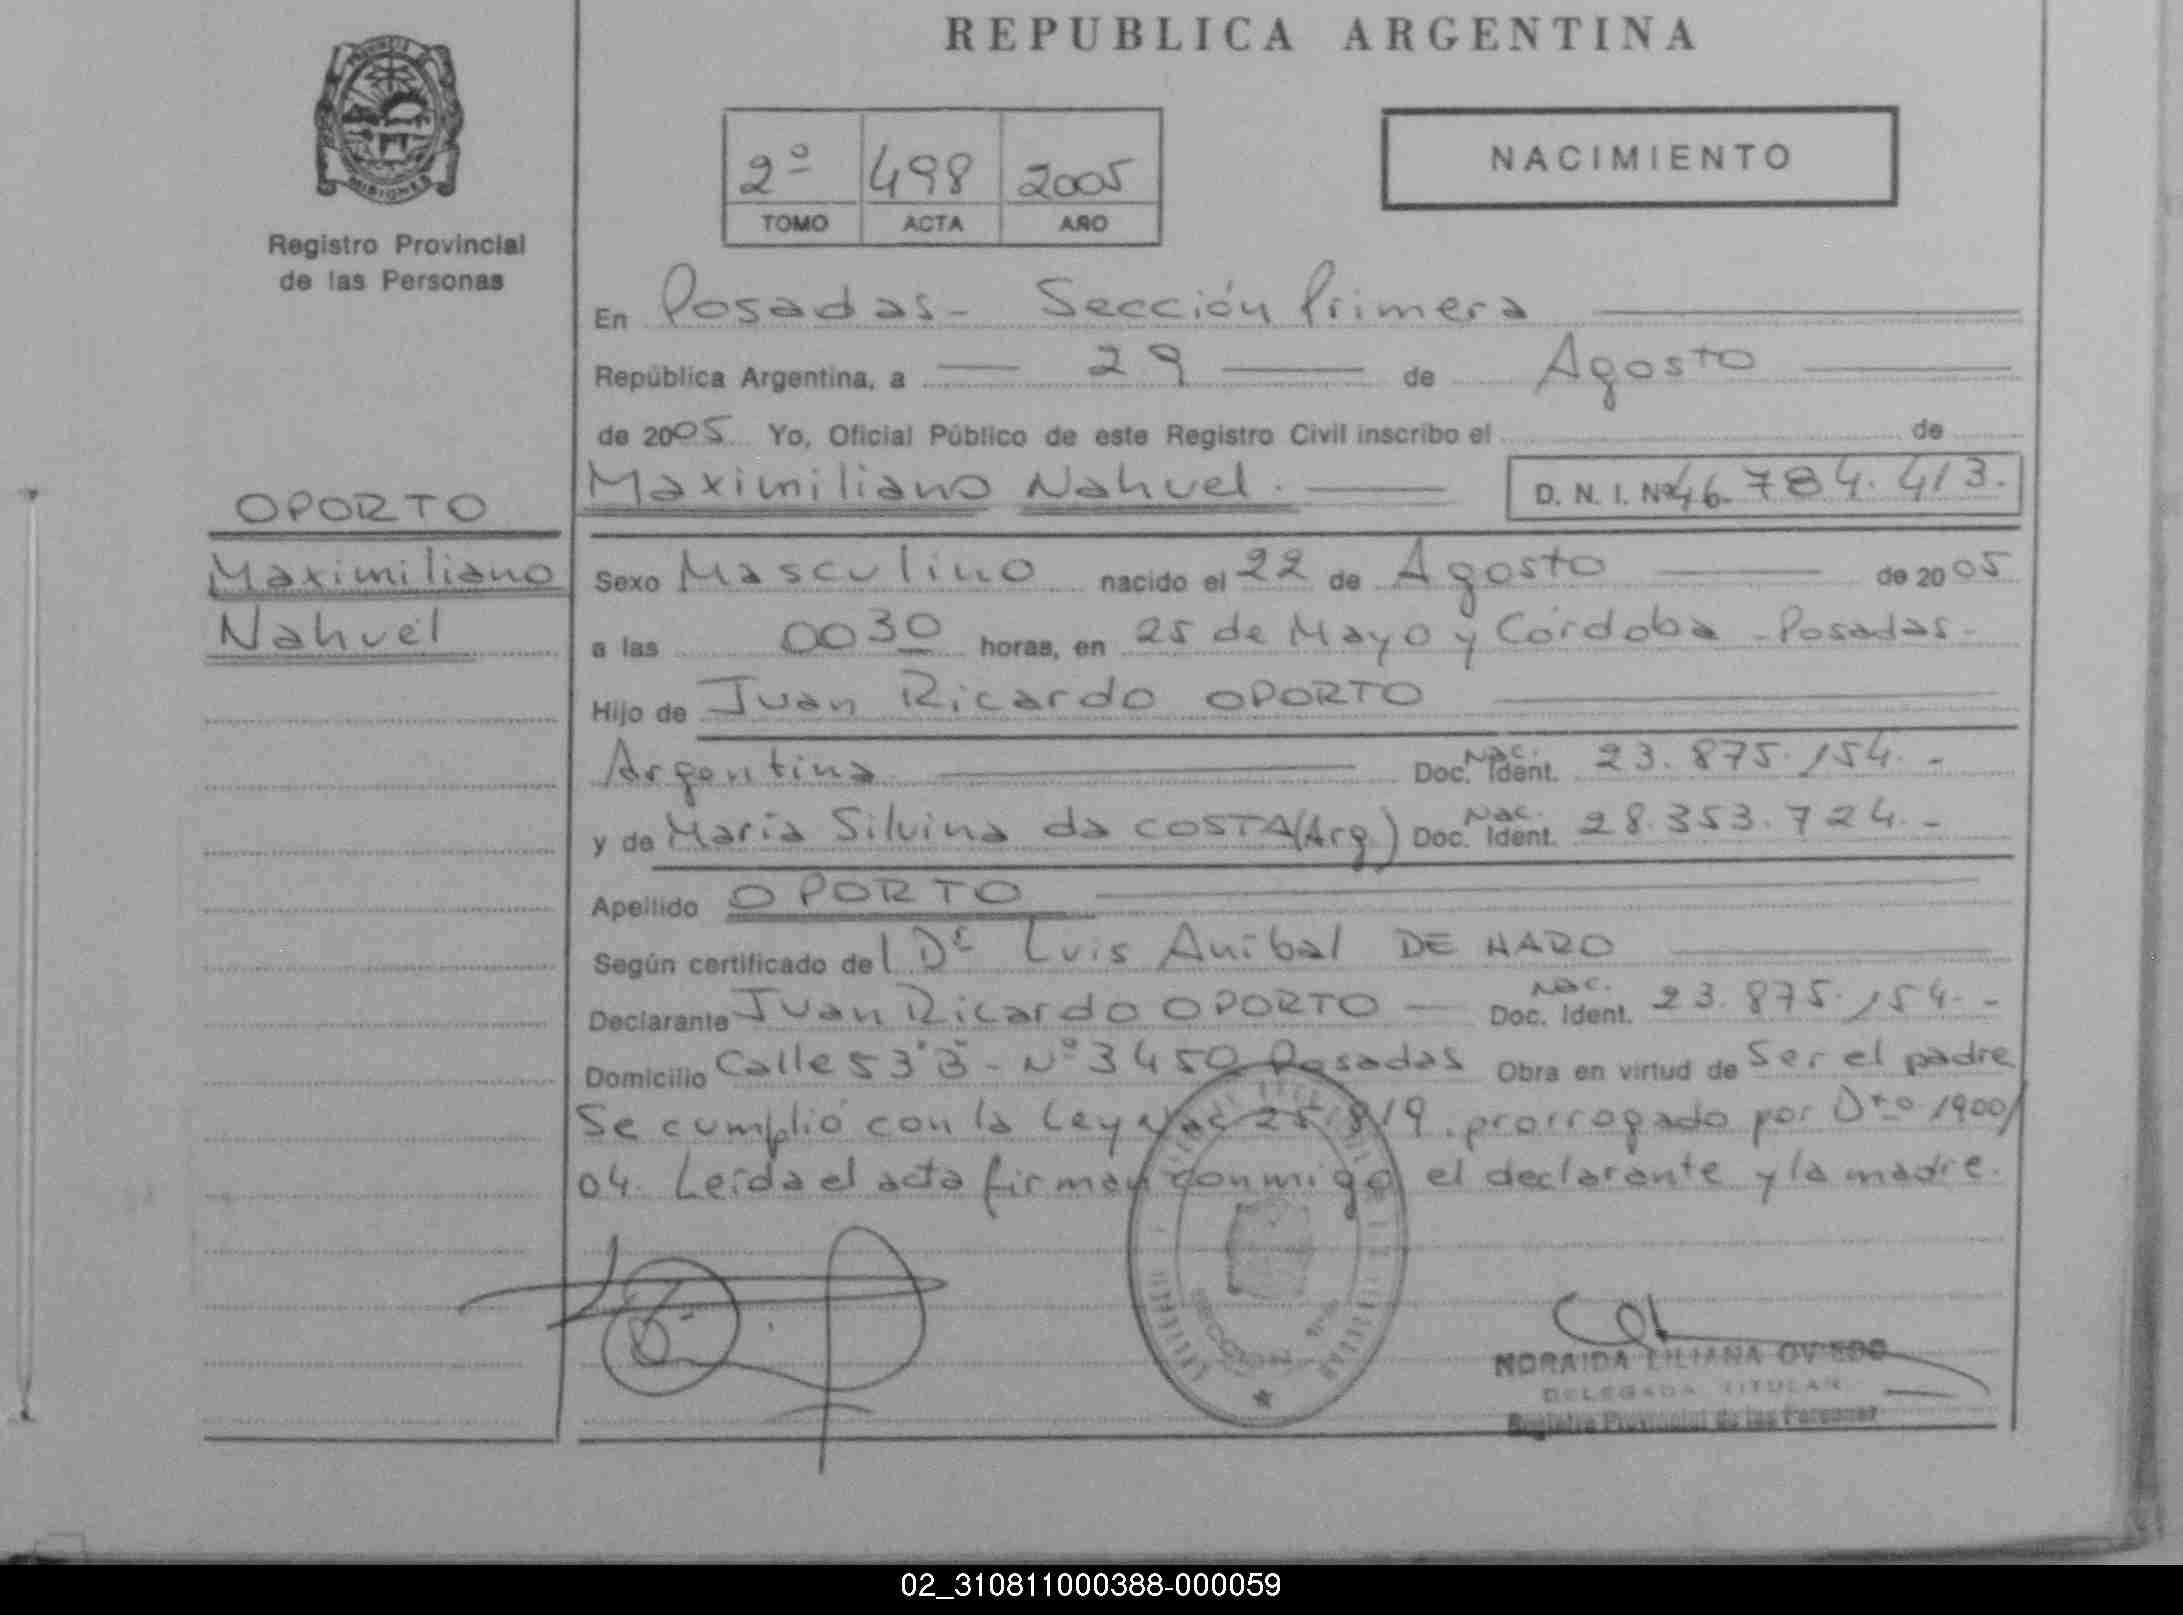 REPUBLICA ARGENTINA
PROVINCIA DE
MISIONES
Registro Provincial
de las Personas
2º 498 2005
TOMO ACTA AÑO
NACIMIENTO
En Posadas - Sección Primera
República Argentina, a 29 de Agosto
de 2005 Yo, Oficial Público de este Registro Civil inscribo el de
Maximiliano Nahuel. D. N. I. Nº 46.784.413.
OPORTO
Maximiliano
Nahuel
Sexo Masculino nacido el 22 de Agosto de 2005
a las 0030 horas, en 25 de Mayo y Córdoba - Posadas -
Hijo de Juan Ricardo OPORTO
Argentina Doc. Nac. Ident. 23.875.154.-
y de María Silvina da COSTA (Arg.) Doc. Nac. Ident. 28.353.724.-
Apellido OPORTO
Según certificado del Dr Luis Aníbal DE HARO
Declarante Juan Ricardo OPORTO - Doc. Nac. Ident. 23.875.154.-
Domicilio Calle 53"B" - Nº 3450 Posadas Obra en virtud de Ser el padre
Se cumplió con la Ley Nac 25.819. prorrogado por Dto. 1900/
04. Leída el acta firman conmigo el declarante y la madre.
SECCION 1ra
NORAIDA LILIANA OVIEDO
DELEGADA TITULAR
Registro Provincial de las Personas
02_310811000388-000059